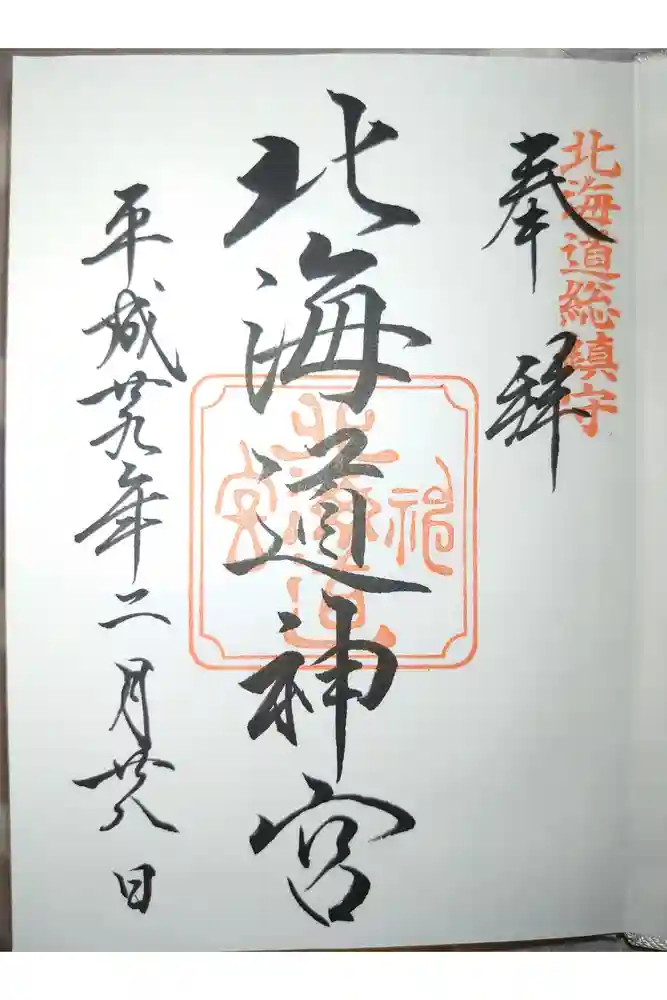 北海道総鎮守
奉拝
北海道神宮
北海道神宮
平成廿九年二月廿八日